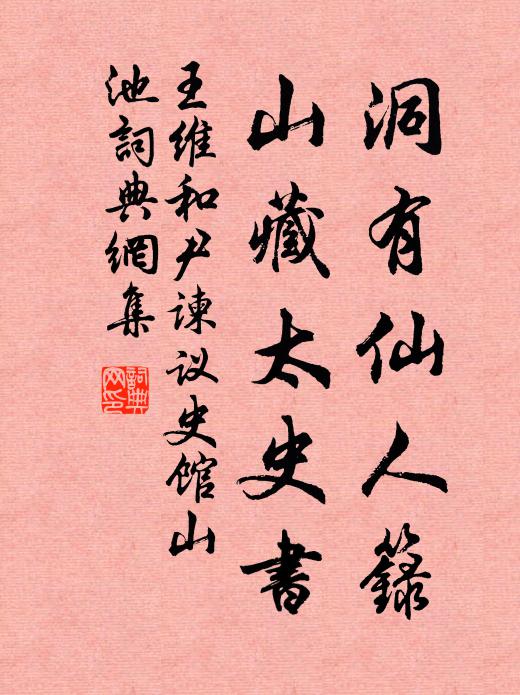 洞有仙人籙
山藏太史書
王维和尹谏议史馆山
池詞典網集
詞典
网印